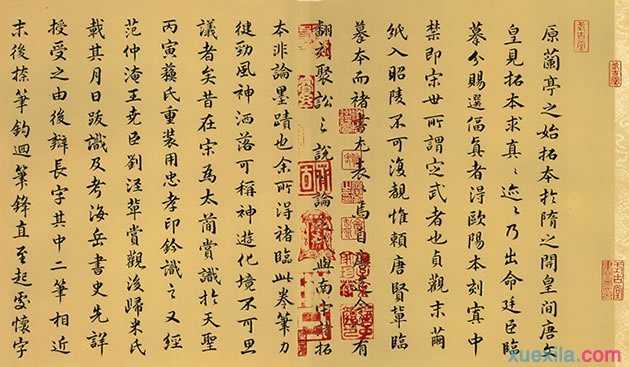 原蘭亭之始拓本於隋之開皇間唐文
皇見拓本求真之迹之乃出命廷臣臨
摹分賜選逼真者得歐陽本刻寘中
禁即宋世所謂定武者也貞觀末繭
紙入昭陵不可復覩惟賴唐賢輩臨
摹本而褚書尤表馬自有
翻刻聚訟之說論與南宋拓
本非論墨蹟也余所得褚臨此卷筆力
健勁風神洒落可稱神遊化境不可思
議者矣昔在宋為太簡賞識於天聖
丙寅蘓氏重裝用忠孝印鈐識之又經
范仲淹王尭臣劉涇輩賞觀後歸米氏
載其月日跋識及考海岳書史先詳
授受之由後辯長字其中二筆相近
末後捺筆鈎迴筆鋒直至起處懷字
xuexila.com